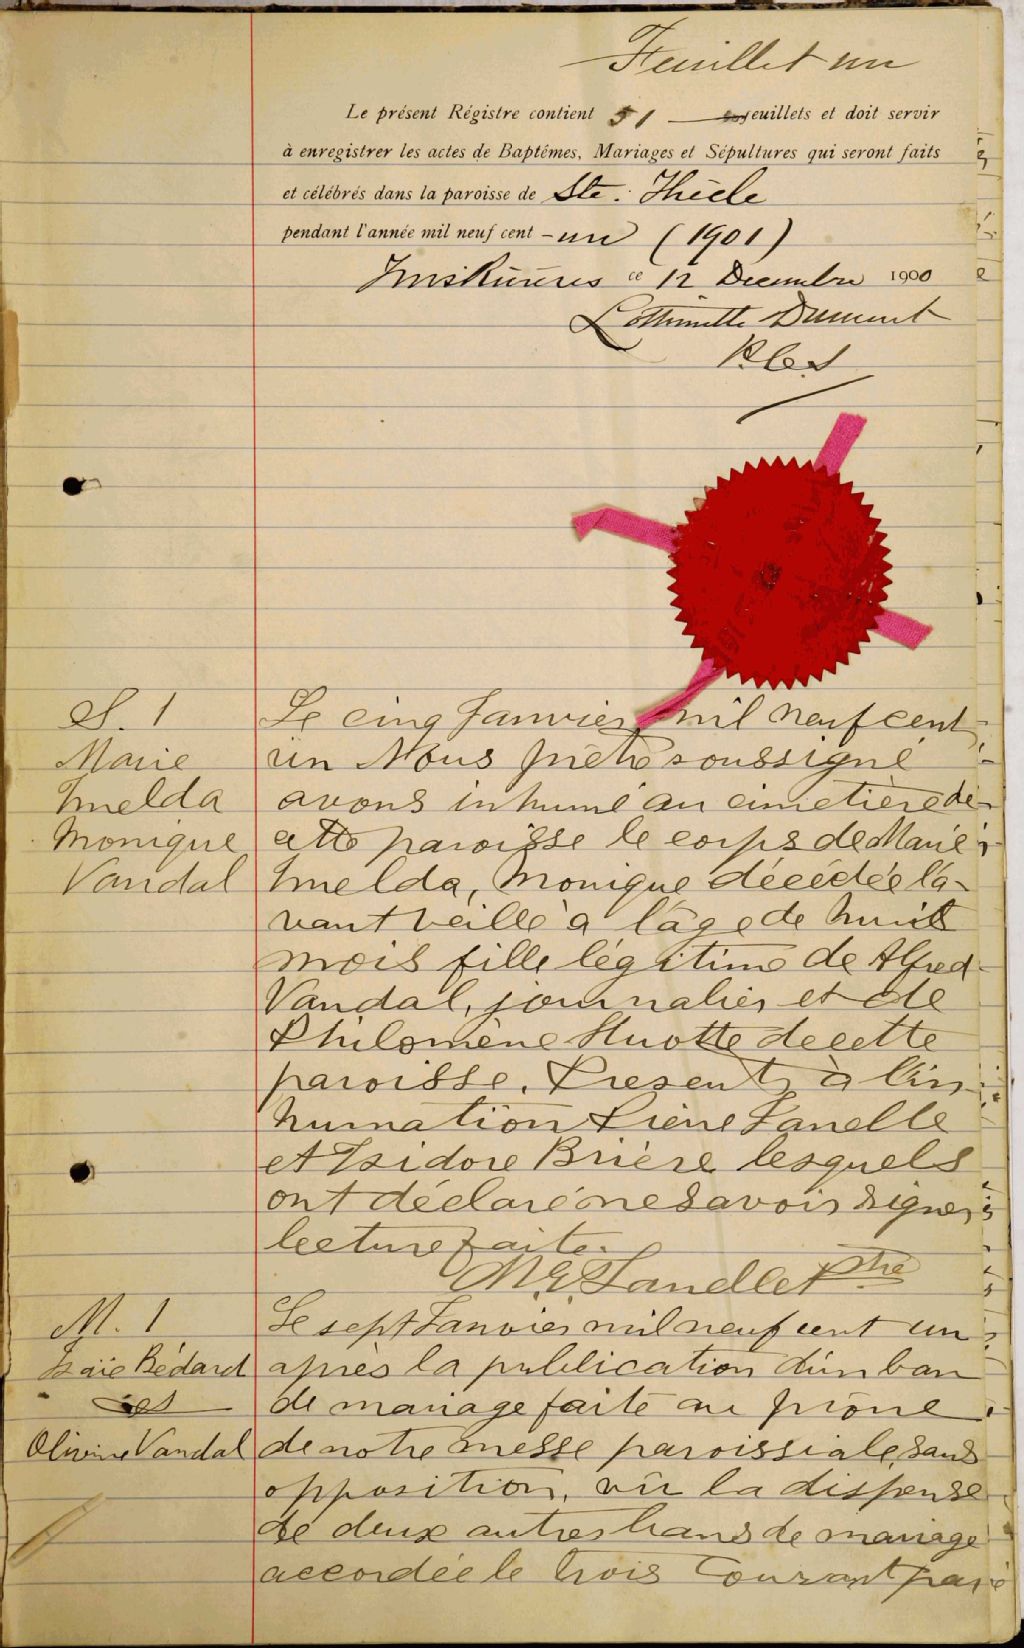 Feuillet un
Le présent Régistre contient 51 feuillets et doit servir
à enregistrer les actes de Baptêmes, Mariages et Sépultures qui seront faits
et célébrés dans la paroisse de Ste. Thècle
pendant l'année mil neuf cent -un (1901)
ce 12 Decembre 1900
Dumont
P.C.S
S. 1
Marie
Imelda
Monique
Vandal
Le cinq Janvier mil neuf cent
un Nous prêtre soussigné
avons inhumé au cimetière de
cette paroisse le corps de Marie
Imelda, Monique décédée l'a-
vant veille à l'âge de huit
mois fille légitime de Alfred
Vandal, journalier et de
Philomène Huotte de cette
paroisse. Presents à l'in
humation Pière Janelle
et Isidore Brière lesquels
ont déclaré ne savoir signer
lecture faite.
Ptre
M. 1
Isaïe Bédard
et
Olivine Vandal
Le sept Janvier mil neuf cent un
après la publication d'un ban
de mariage faite au prône
de notre messe paroissiale, sans
opposition, vû la dispense
de deux autres bans de mariage
accordée le trois courant par